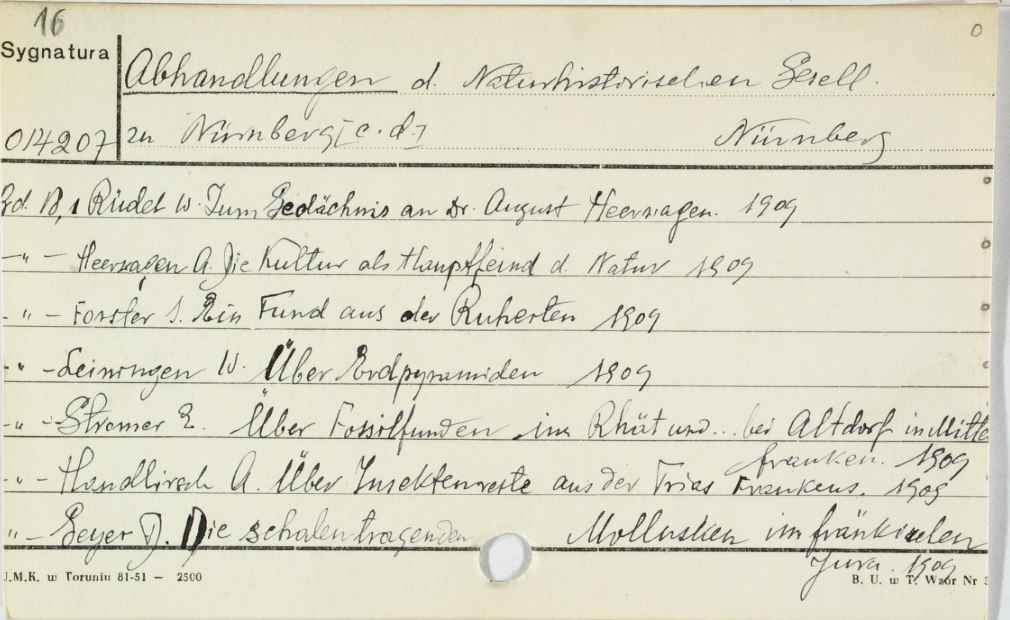 16
Sygnatura
Abhandlungen d. Naturhistorischen Gesell.
014207 zu Nürnberg [c.d.] Nürnberg
Bd. 18, 1 Rüdel W. Zum Gedächnis an Dr. August Heerwagen. 1909
-"- Heerwagen A. Die Kultur als Hauptfeind d. Natur 1909
-"- Forster S. Ein Fund aus der 1909
-"- Leiningen W. Über Erdpyramiden 1909
-"- Stromer E. Über Fossilfunden im Rhät und... bei Altdorf in Mittel
franken. 1909
-"- Handlirsch A. Über Insektenreste aus der Trias Frankens. 1909
"- Geyer D. Die schalentragenden Mollusken im fränkischen
Jura. 1909
J.M.K. w Toruniu 81-51 — 2500 B. U. w T. Wzór Nr 3